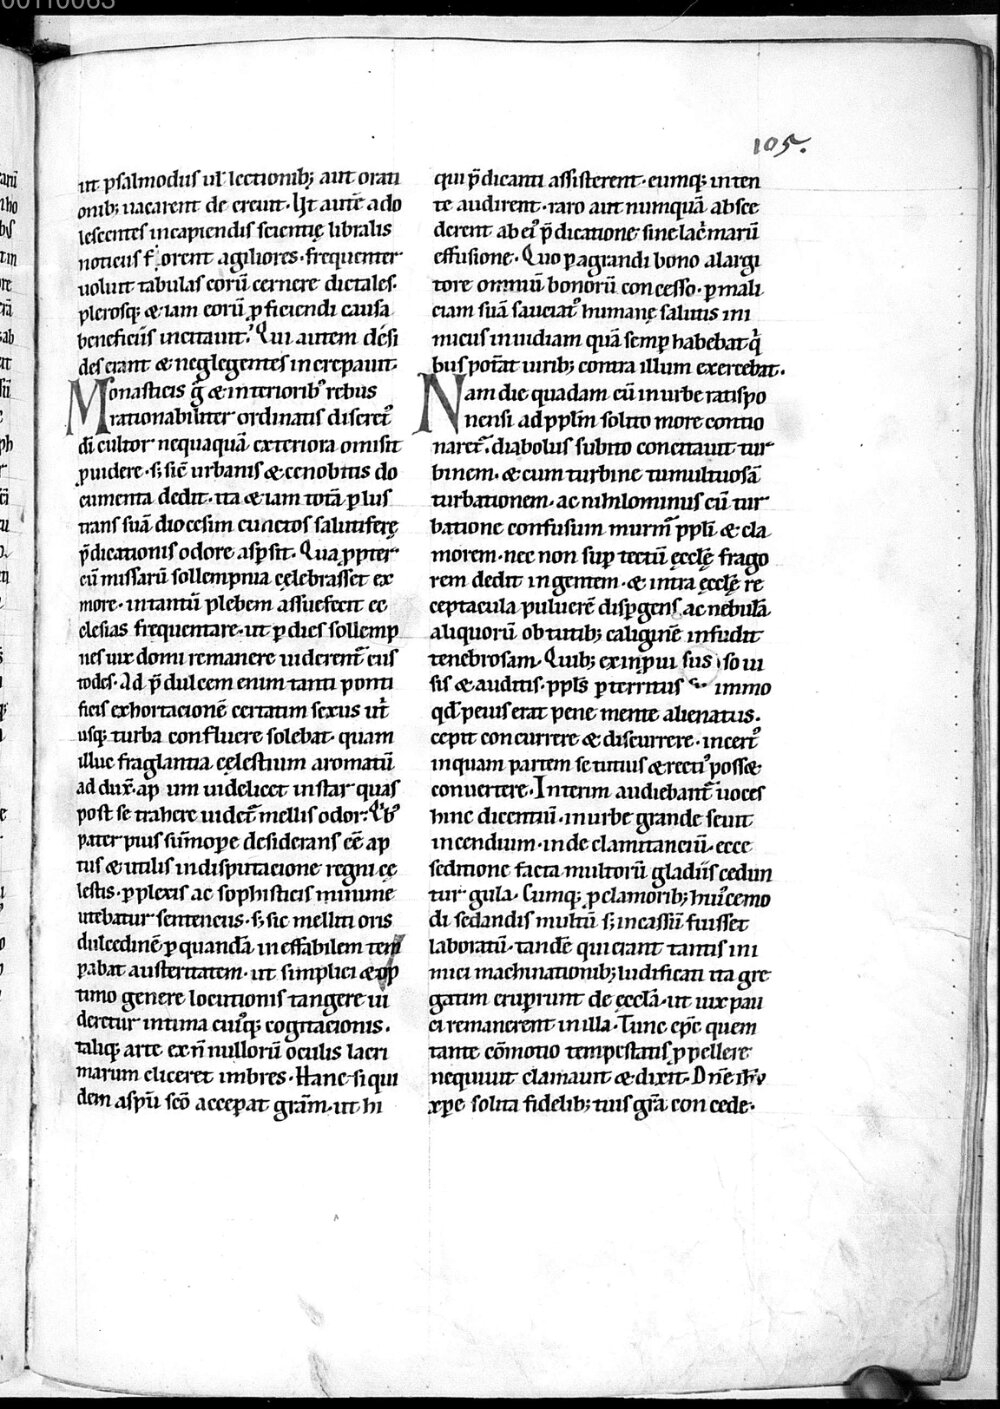 00110063
105.
ut psalmodiis ul' lectionib; aut orati
onib; uacarent de creuit. Ut autē ado
lescentes in capiendis scientię libralis
noticiis f orent agiliores. frequenter
uoluit tabulas eorū cernere dictales.
plerosq; & iam eorū ꝓficiendi causa
beneficiis incitauit. Qui autem desi
des erant & neglegentes increpauit.
Monasticis g̃ & interiorib' rebus
rationabiliter ordinatis discret'
di cultor nequaquā exteriora omisit
puidere. s; sic̄ urbanis & cenobitis do
cumenta dedit. ita & iam totā p lus
trans suā diocesim cunctos salutiferę
p̄dicationis odore asp̱sit. Qua ꝓpter
cū missarū sollempnia celebrasset ex
more. in tantū plebem assuefecit ec
clesias frequentare. ut p dies sollemp
nes uix domi remanere uiderent̄ cus
todes. Ad p̄dulcem enim tanti ponti
ficis exhortacionē certatim sexus ut̓
usq; turba confluere solebat. quam
illuc fraglantia cęlestium aromatū
ad dux̄. ap um uidelicet instar quas
post se trahere uidet̄ mellis odor. Q'b'
pater pius sūmopē desiderans eē ap
tus & utilis in disputacione regni cę
lestis. pplexis ac sophisticis minime
utebatur sentenciis. s; sic melliti oris
dulcedinē p quandā ineffabilem tem
pabat austeritatem. ut simplici & op
timo genere locutionis tangere ui
deretur intima cui'q; cogitacionis.
taliq; arte ex n̄ nullorū oculis lacri
marum eliceret imbres. Hanc siqui
dem a sp̄u sc̄o accepat grām. ut hi
qui p̄dicanti assisterent. eumq; inten
te audirent. raro aut numquā absce
derent ab ei' p̄dicatione sine lac̄marū
effusione. Quo p̱ a grandi bono a largi
tore omniū bonorū concesso. p mali
ciam suā sauciat' humanę salutis ini
micus inuidiam quā semp habebat q̓
bus potat̄ uirib; contra illum exercebat.
Nam die quadam cū in urbe ratispo
nensi ad pp̄lm solito more contio
naret̄. diabolus subito concitauit tur
binem. & cum turbine tumultuosā
turbationem. ac nihilominus cū tur
batione confusum murm̄ pp̄li & cla
morem. nec non sup tectū ęcclę frago
rem dedit ingentem. & intra ęcclę re
ceptacula puluerē dispgens. ac nebulā
aliquorū obtutib; caliginē infudit
tenebrosam. Quib; ex inpui sus iso ui
sis & auditis. pp̄ls pterritus immo
qd̄ peius erat pene mente alienatus.
cepit concurrere & discurrere. incert'
in quam partem se tutius & recti' poss&
conuertere. Interim audiebant̄ uoces
hinc dicentiū. in urbe grande seuit
incendium. inde clamitanciū. ecce
seditione facta multorū gladiis cedun
tur gula. Cumq; p clamorib; hui'cemo
di sedandis multū s; incassū fuisset
laboratū. tandē qui erant tantis ini
mici machinationib; ludificati ita gre
gatim eruprunt de ęccla. ut uix pau
ci remanerent in illa. Tunc ep̄c quem
tante cōmotio tempestatis ꝓpellere
nequiuit clamauit & dixit. Dn̄e ih̄u
xp̄e solita fidelib; tuis grā concede.